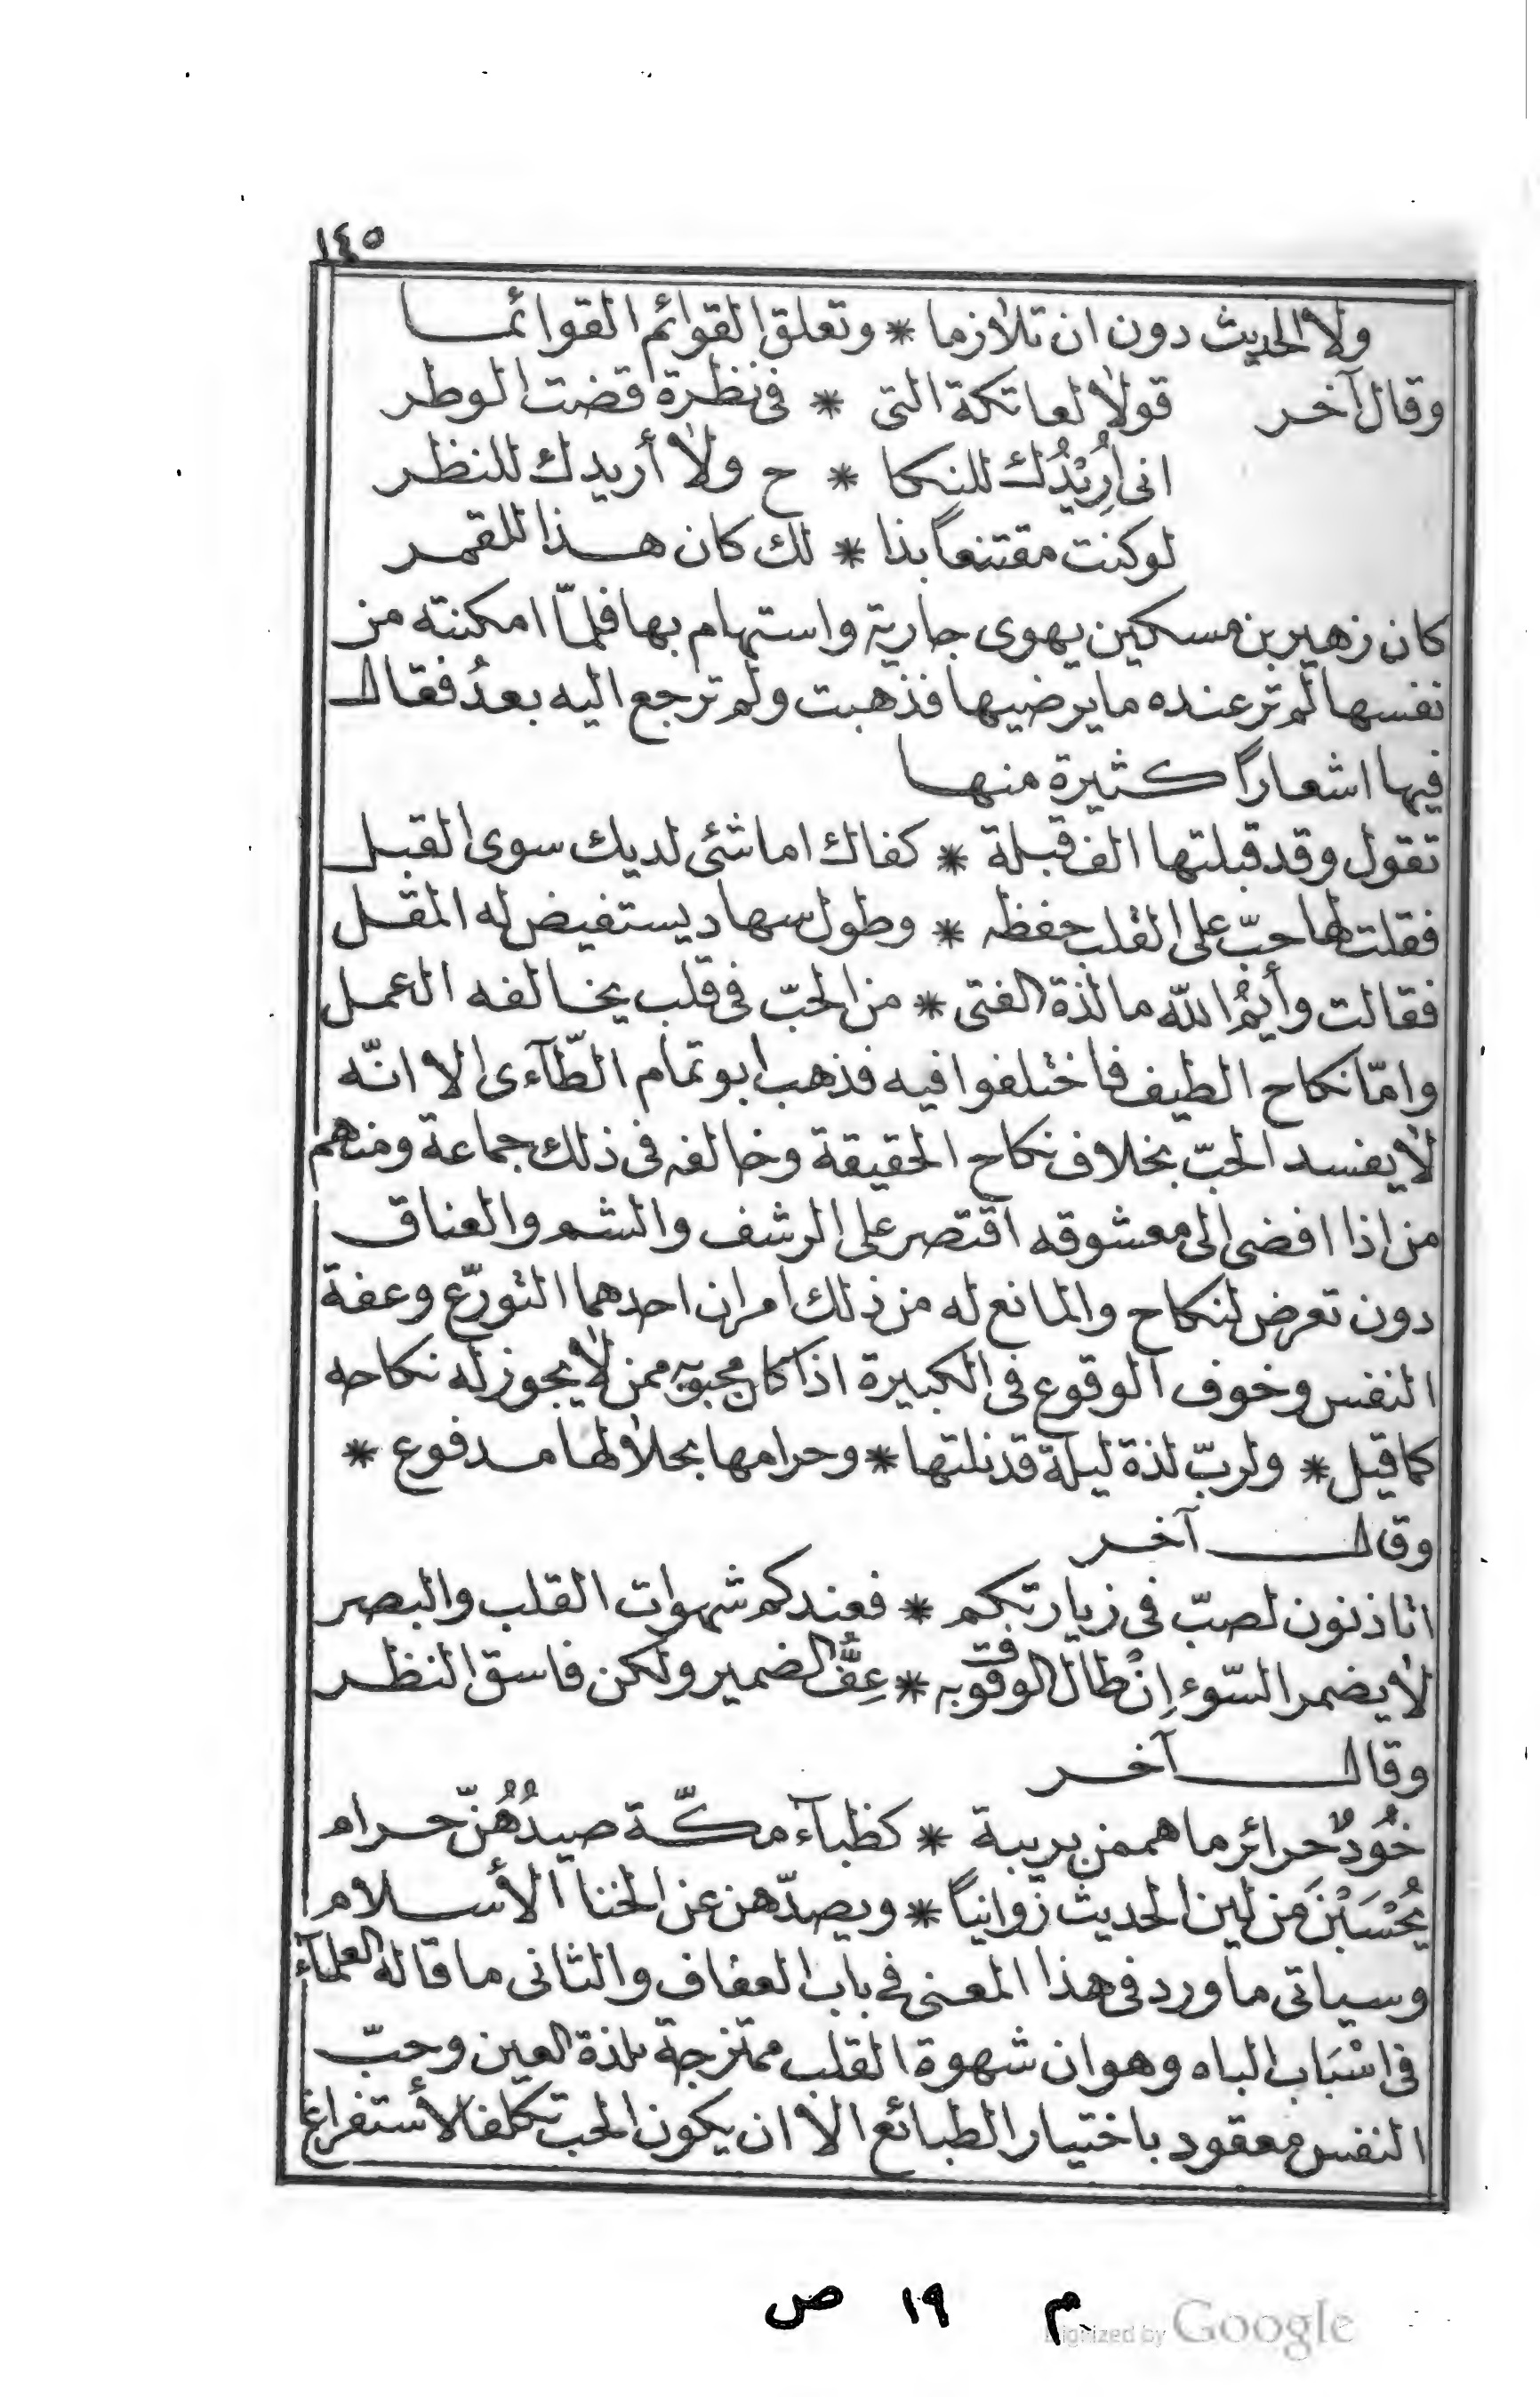 ١٤٥
ولا الحديث دون ان تلازما * وتعلق القوائم القوائما
وقال آخر قولا لعاتكة التى * فى نظرة قضت الوطر
انى اُرِيْدُك للنكا * ح ولا أريدك للنظر
لو كنت مقتنعاً بذا * لك كان هذا للقمر
كان زهير بن مسكين يهوى جارية واستهام بها فلمّا امكنته من
نفسها لم تر عنده ما يرضيها فذهبت ولم ترجع اليه بعدُ فقال
فيها اشعاراً كثيرة منها
تقول وقد قبلتها الف قبلة * كفاك اما شئ لديك سوى القبل
فقلت لها حبّ على القلب حفظه * وطول سهاد يستفيض له المقل
فقالت وأيمُ الله ما لذة الفتى * من الحبّ فى قلب يخالفه العمل
وامّا نكاح الطيف فاختلفوا فيه فذهب ابو تمام الطّآءى الا انّه
لا يفسد الحبّ بخلاف نكاح الحقيقة وخالفه فى ذلك جماعة ومنهم
من اذا افضى الى معشوقه اقتصر على الرشف والشم والعناق
دون تعرض لنكاح والمانع له من ذلك امران احدهما التورّع وعفة
النفس وخوف الوقوع فى الكبيرة اذا كان محبوبه ممن لا يجوز له نكاحه
كما قيل * ولربّ لذة ليلة قد نلتها * وحرامها بحلالها مدفوع *
وقال آخر
اتاذنون لصبّ فى زيارتكم * فعندكم شهوات القلب والبصر
لا يضمر السّوء اِنْ طال الوقوف به * عِفُّ الضمير ولكن فاسق النظر
وقال آخر
خُودٌ حرائر ما هممن بريبة * كظبآء مكّة صيدُهُنّ حرام
يُحْسَبْنَ مِن لين الحديث زوانياً * ويصدّهن عن الخنا الأسلام
وسياتى ما ورد فى هذا المعنى فى باب العفاف والثانى ما قاله العلمآء
فى اسْبَاب الباه وهو ان شهوة القلب ممتزجة بلذة العين وحبّ
النفس معقود باختيار الطبائع الا ان يكون الحب تكلفا لأستفراغ
م ١٩ ص
Digitized by Google